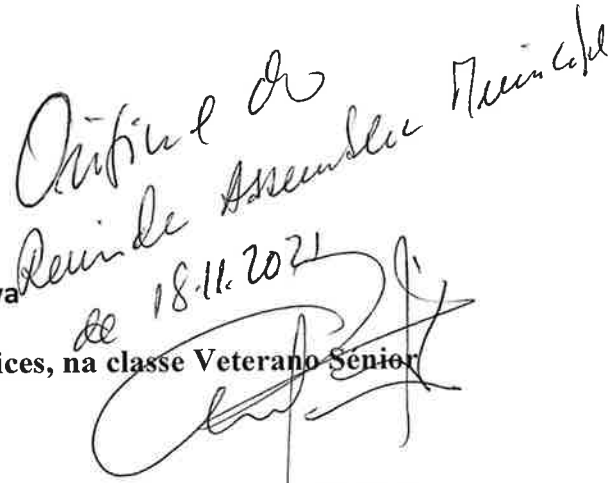 Original da
Reunião Assembleia Municipal
de 18.11.2021
va
ices, na classe Veterano Sénior